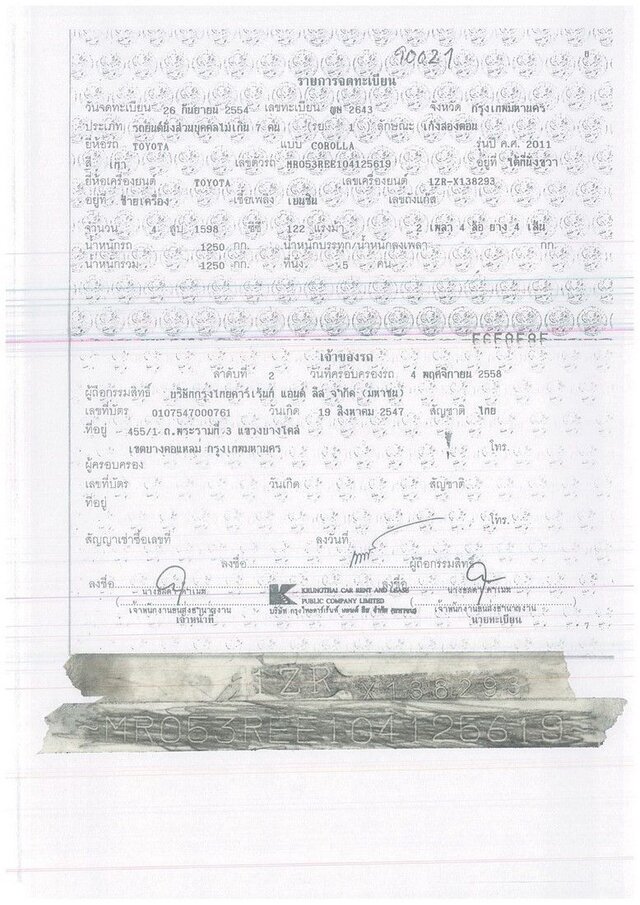 90021
รายการจดทะเบียน
วันจดทะเบียน 26 กันยายน 2554 เลขทะเบียน 2643 จังหวัด กรุงเทพมหานคร
ประเภท รถยนต์นั่งส่วนบุคคลไม่เกิน 7 คน (รย. 1 ลักษณะ เก๋งสองตอน
ยี่ห้อรถ TOYOTA แบบ COROLLA รุ่นปี ค.ศ. 2011
สี เทา เลขตัวรถ MR053REE104125619 อยู่ที่ ใต้ที่นั่งขวา
ยี่ห้อเครื่องยนต์ TOYOTA เลขเครื่องยนต์ 1ZR-X138293
อยู่ที่ ซ้ายเครื่อง เชื้อเพลิง เบนซิน เลขถังแก๊ส
จำนวน 4 สูบ 1598 ซีซี 122 แรงม้า 2 เพลา 4 ล้อ ยาง 4 เส้น
น้ำหนักรถ 1250 กก. น้ำหนักบรรทุก/น้ำหนักลงเพลา กก.
น้ำหนักรวม 1250 กก. ที่นั่ง 5 คน
เจ้าของรถ
ลำดับที่ 2 วันที่ครอบครองรถ 4 พฤศจิกายน 2558
ผู้ถือกรรมสิทธิ์ บริษัทกรุงไทยคาร์เร้นท์ แอนด์ ลีส จำกัด (มหาชน)
เลขที่บัตร 0107547000761 วันเกิด 19 สิงหาคม 2547 สัญชาติ ไทย
ที่อยู่ 455/1 ถ.พระรามที่ 3 แขวงบางโคล่
เขตบางคอแหลม กรุงเทพมหานคร โทร.
ผู้ครอบครอง
เลขที่บัตร วันเกิด สัญชาติ
ที่อยู่
โทร.
สัญญาเช่าซื้อเลขที่ ลงวันที่
ลงชื่อ ผู้ถือกรรมสิทธิ์
ลงชื่อ KRUNGTHAI CAR RENT AND LEASE ลงชื่อ
PUBLIC COMPANY LIMITED
บริษัท กรุงไทยคาร์เร้นท์ แอนด์ ลีส จำกัด (มหาชน)
เจ้าพนักงานขนส่งชำนาญงาน เจ้าพนักงานขนส่งชำนาญงาน
เจ้าหน้าที่ นายทะเบียน
1ZR X138293
MR053REE104125619